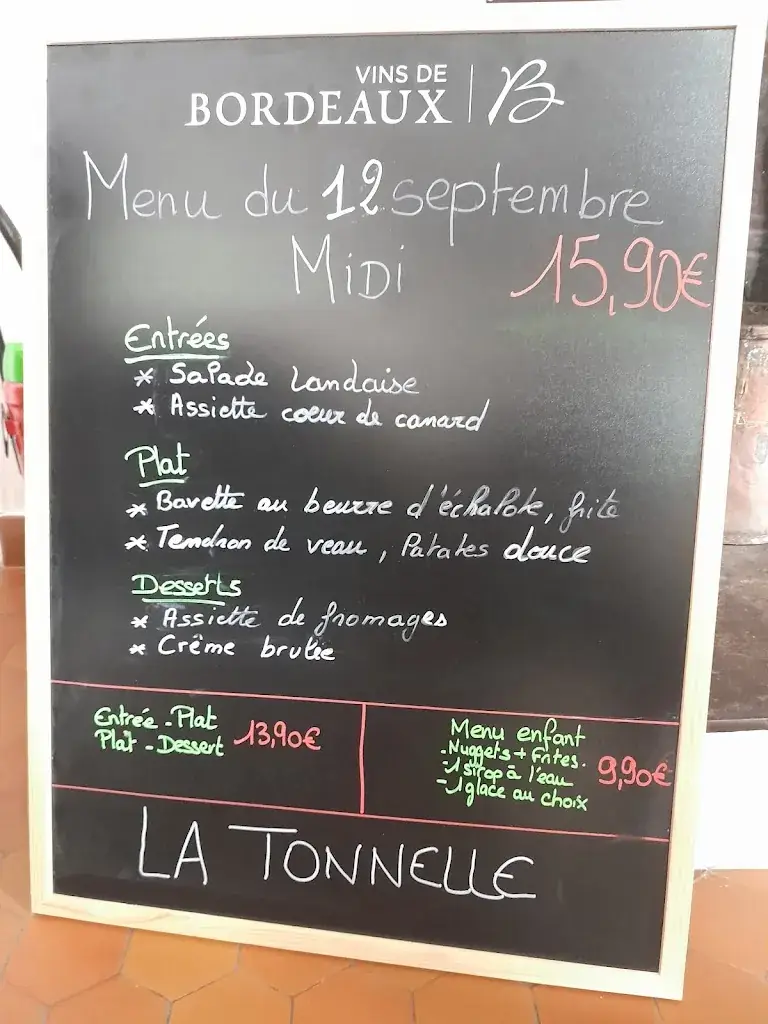 VINS DE
BORDEAUX B
Menu du 12 septembre
MiDi 15,90€
Entrées
* Salade Landaise
* Assiette coeur de canard
Plat
* Bavette au beurre d'échalote, frite
* Tendron de veau, Patates douce
Desserts
* Assiette de fromages
* Crème brulée
Entrée - Plat
Plat - Dessert 13,90€
Menu enfant
- Nuggets + Frites.
- 1 sirop à l'eau 9,90€
- 1 glace au choix
LA TONNELLE